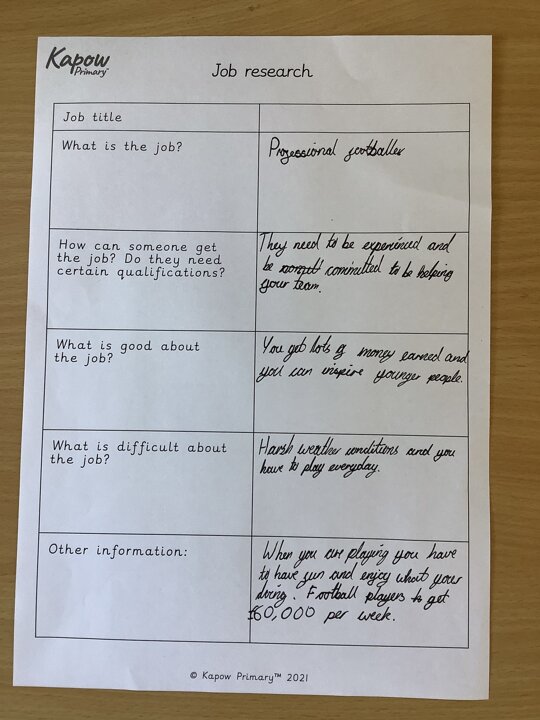 Kapow
Primary™
Job research
Job title
What is the job?
Professional footballer
How can someone get
the job? Do they need
certain qualifications?
They need to be experinced and
be committed to be helping
your team.
What is good about
the job?
You get lots of money earned and
you can inspire younger people.
What is difficult about
the job?
Harsh weather conditions and you
have to play everyday.
Other information:
When you are playing you have
to have fun and enjoy what your
doing. Football players to get
£60,000 per week.
© Kapow Primary™ 2021